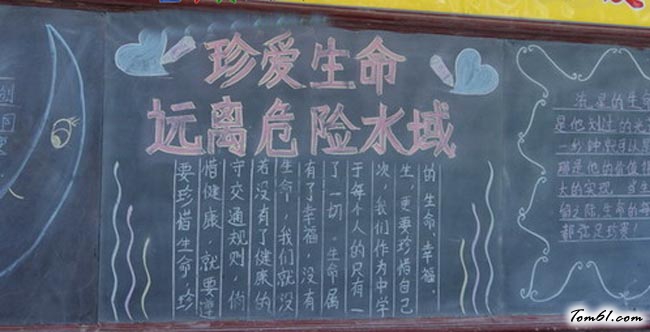 珍爱生命
远离危险水域
要珍惜生命,珍
惜健康,就要遵
守交通规则,倘
若没有了健康的
生命,我们就没
有了幸福,没有
了一切。生命属
于每个人的只有一
次,我们作为中学
生,更要珍惜自己
的生命、幸福。
流星的生命
是他划过的光
一秒钟
是他的价值
大的实现,
之际,生命的每
都弥足珍贵!
Tom61.com